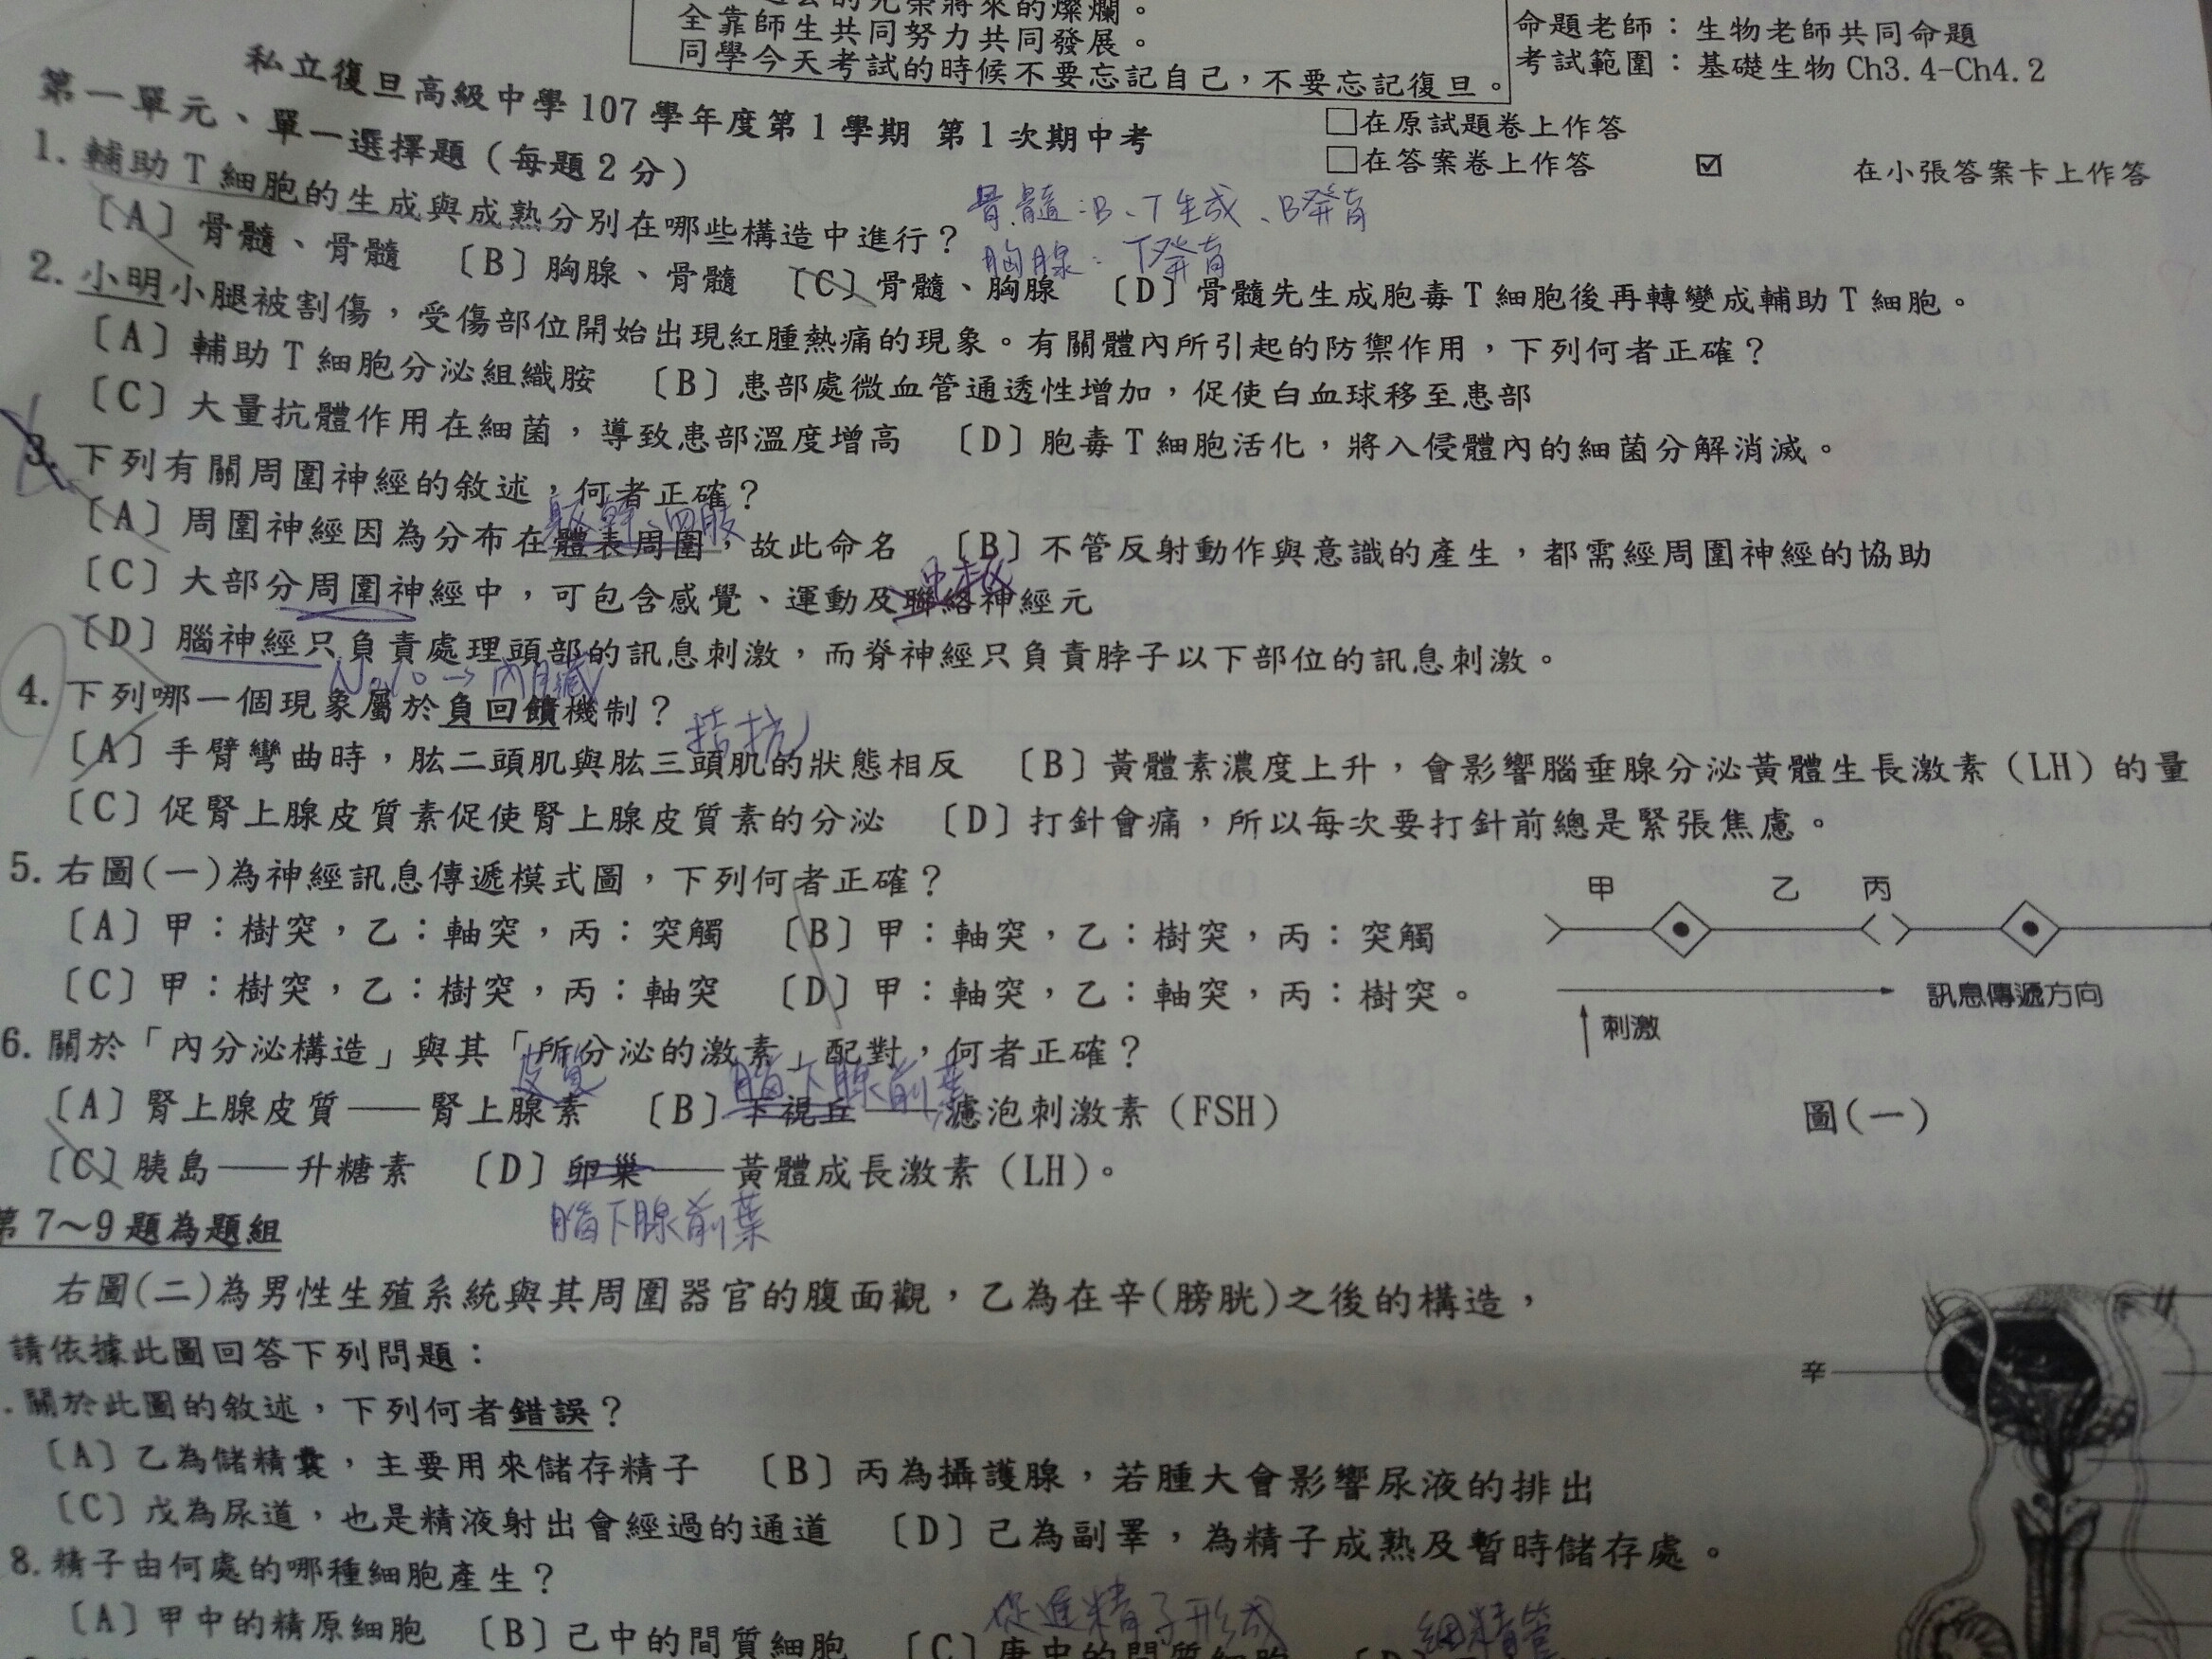 全靠師生共同努力共同發展。
同學今天考試的時候不要忘記自己,不要忘記復旦。
命題老師:生物老師共同命題
考試範圍:基礎生物 Ch3.4-Ch4.2
私立復旦高級中學 107 學年度第 1 學期 第 1 次期中考
□在原試題卷上作答
□在答案卷上作答 ☑ 在小張答案卡上作答
第一單元、單一選擇題(每題2分)
1. 輔助 T 細胞的生成與成熟分別在哪些構造中進行?
骨髓:B、T生成、B發育
胸腺:T發育
〔A〕骨髓、骨髓 〔B〕胸腺、骨髓 〔C〕骨髓、胸腺 〔D〕骨髓先生成胞毒 T 細胞後再轉變成輔助 T 細胞。
2. 小明小腿被割傷,受傷部位開始出現紅腫熱痛的現象。有關體內所引起的防禦作用,下列何者正確?
〔A〕輔助 T 細胞分泌組織胺 〔B〕患部處微血管通透性增加,促使白血球移至患部
〔C〕大量抗體作用在細菌,導致患部溫度增高 〔D〕胞毒 T 細胞活化,將入侵體內的細菌分解消滅。
3. 下列有關周圍神經的敘述,何者正確?
軀幹、四肢
〔A〕周圍神經因為分布在體表周圍,故此命名 〔B〕不管反射動作與意識的產生,都需經周圍神經的協助
中樞
〔C〕大部分周圍神經中,可包含感覺、運動及聯絡神經元
〔D〕腦神經只負責處理頭部的訊息刺激,而脊神經只負責脖子以下部位的訊息刺激。
No.10 → 內臟
4. 下列哪一個現象屬於負回饋機制?
拮抗
〔A〕手臂彎曲時,肱二頭肌與肱三頭肌的狀態相反 〔B〕黃體素濃度上升,會影響腦垂腺分泌黃體生長激素(LH)的量
〔C〕促腎上腺皮質素促使腎上腺皮質素的分泌 〔D〕打針會痛,所以每次要打針前總是緊張焦慮。
5. 右圖(一)為神經訊息傳遞模式圖,下列何者正確?
〔A〕甲:樹突,乙:軸突,丙:突觸 〔B〕甲:軸突,乙:樹突,丙:突觸
〔C〕甲:樹突,乙:樹突,丙:軸突 〔D〕甲:軸突,乙:軸突,丙:樹突。
甲 乙 丙
訊息傳遞方向
刺激
圖(一)
6. 關於「內分泌構造」與其「所分泌的激素」配對,何者正確?
皮質 腦下腺前葉
〔A〕腎上腺皮質——腎上腺素 〔B〕下視丘——濾泡刺激素(FSH)
〔C〕胰島——升糖素 〔D〕卵巢——黃體成長激素(LH)。
腦下腺前葉
第 7~9 題為題組
右圖(二)為男性生殖系統與其周圍器官的腹面觀,乙為在辛(膀胱)之後的構造,
請依據此圖回答下列問題:
. 關於此圖的敘述,下列何者錯誤?
〔A〕乙為儲精囊,主要用來儲存精子 〔B〕丙為攝護腺,若腫大會影響尿液的排出
〔C〕戊為尿道,也是精液射出會經過的通道 〔D〕己為副睪,為精子成熟及暫時儲存處。
辛
8. 精子由何處的哪種細胞產生?
促進精子形成 細精管
〔A〕甲中的精原細胞 〔B〕己中的間質細胞 〔C〕庚中的間質細胞 〔D〕